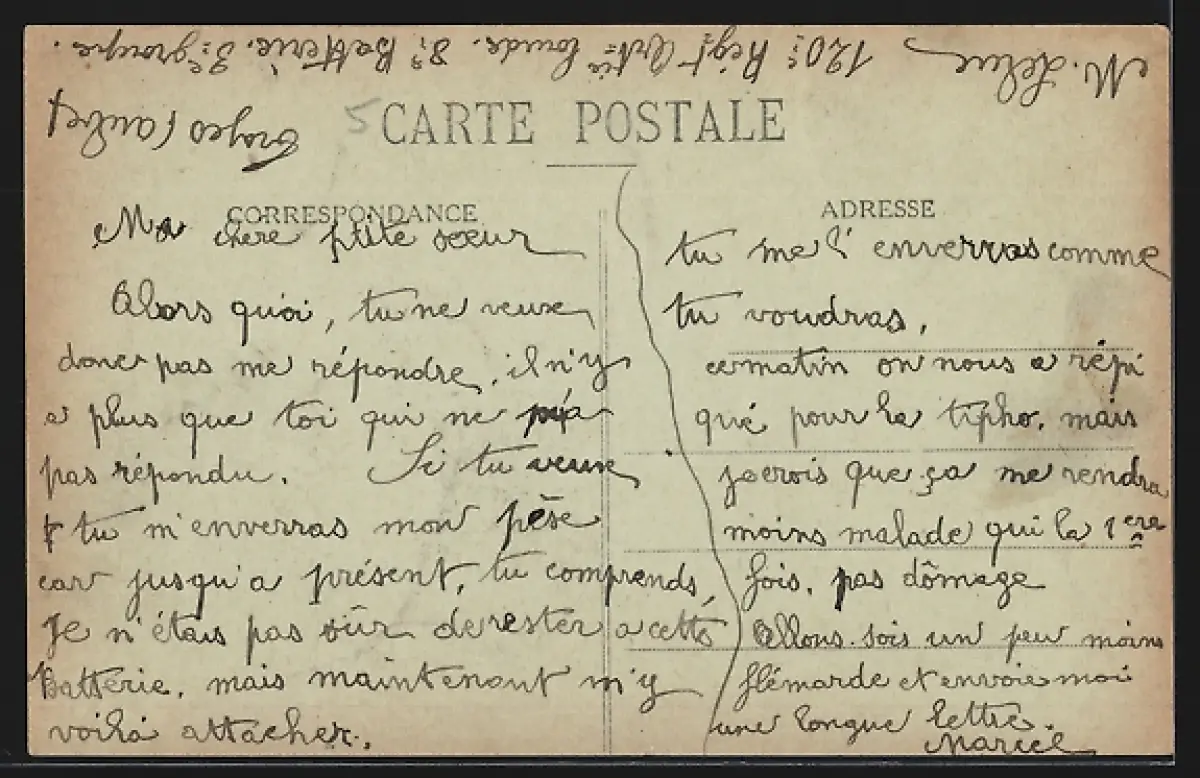 M. Lelue 120e Regt Artie lourde. 8e Batterie. 3e groupe.
Troyes (aube)
CARTE POSTALE
CORRESPONDANCE
ADRESSE
Ma chere ptite sœur
Alors quoi, tu ne veux
donc pas me répondre, il n'y
a plus que toi qui ne m'a
pas répondu. Si tu veux
tu m'enverras mon pèse
car jusqu'a présent, tu comprends,
Je n'étais pas sûr de rester a cette
Batterie, mais maintenant m'y
voilà attacher.
tu me l'enverras comme
tu voudras,
ce matin on nous a répi
qué pour la tipho, mais
je crois que ça me rendra
moins malade qui la 1ere
fois, pas dômage
Allons sois un peu moins
flémarde et envoie moi
une longue lettre.
Marcel